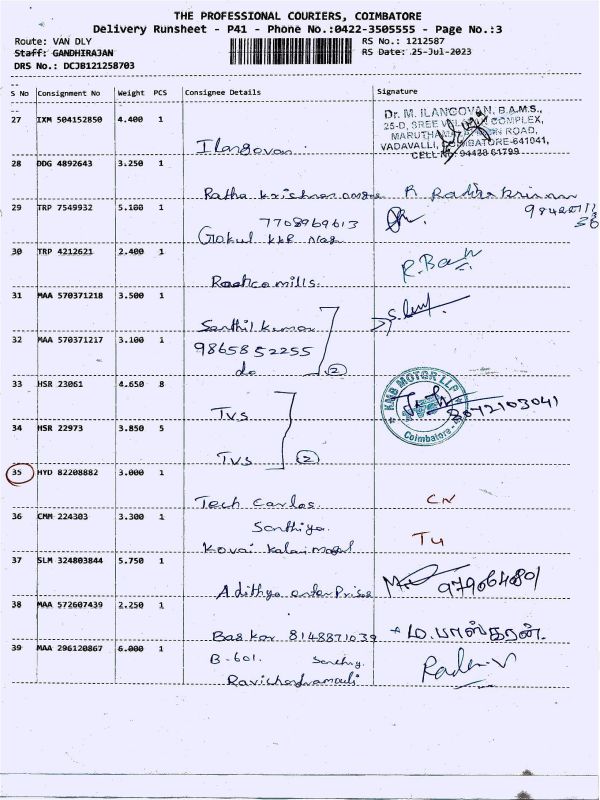 THE PROFESSIONAL COURIERS, COIMBATORE
Delivery Runsheet - P41 - Phone No.:0422-3505555 - Page No.:3
Route: VAN DLY RS No.: 1212587
Staff: GANDHIRAJAN RS Date: 25-Jul-2023
DRS No.: DCJB121258703
S No Consignment No Weight PCS Consignee Details Signature
27 IXM 504152850 4.400 1
Dr. M. ILANGOVAN, B.A.M.S.,
25-D, SREE COMPLEX,
ROAD,
VADAVALLI, COIMBATORE-641041,
CELL NO: 94438 61799
Ilangovan
28 DDG 4892643 3.250 1
Ratha krishnan R Radha krishnan
29 TRP 7549932 5.100 1
7708969613
Gokul KKR Nagar
30 TRP 4212621 2.400 1
Rashco mills. R.Bah
31 MAA 570371218 3.500 1
Senthil kumar
32 MAA 570371217 3.100 1
9865852255
do 2
33 HSR 23061 4.650 8
KMB MOTOR LLP
8072103041
Coimbatore
TVS
34 HSR 22973 3.850 5
TVS 2
35 HYD 82208882 3.000 1
Tech Carlos. CN
36 CMM 224303 3.300 1
Santhiya
Kovai kalaimagal TU
37 SLM 324803844 5.750 1
Adithya enterprise
38 MAA 572607439 2.250 1
Baskar 8148871039 ம. பாஸ்கரன்.
39 MAA 296120867 6.000 1
B-601.
Ravichandramouli